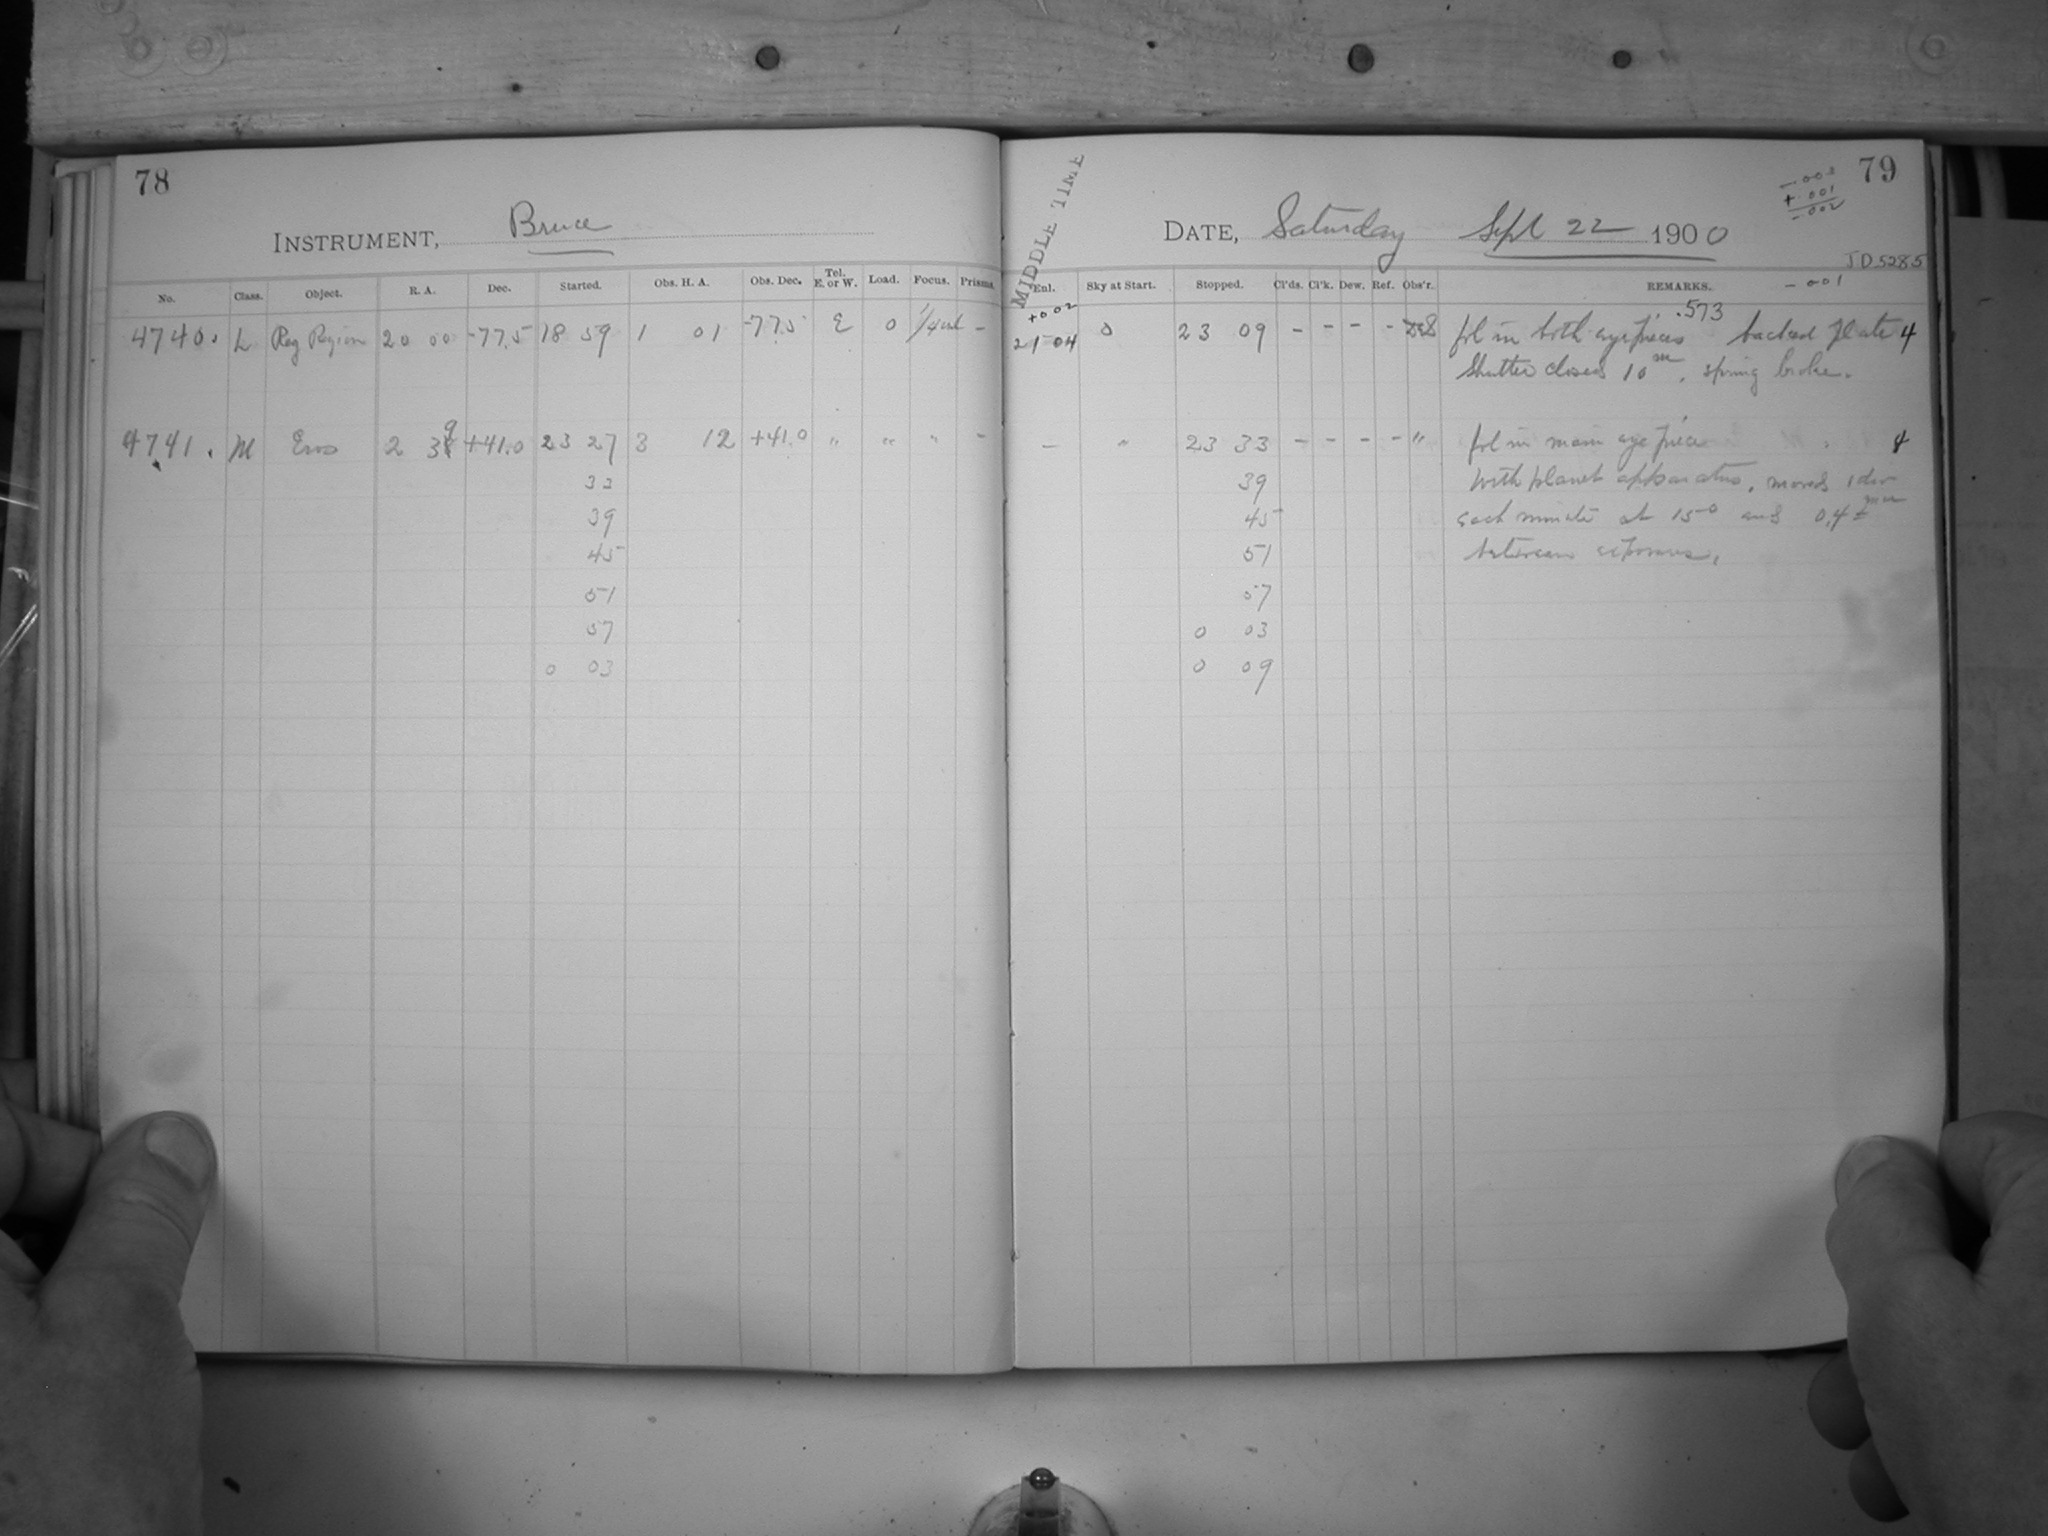 78
INSTRUMENT, Bruce
No. Class. Object. R. A. Dec. Started. Obs. H. A. Obs. Dec. Tel. E. or W. Load. Focus. Prisms
4740. L Reg Region 20 00 -77.5 18 59 1 01 -77.5 E 0 -
4741. M Eros 2 39 +41.0 23 27 3 12 +41.0 " " " -
33
39
45
51
57
0 03
79
-.003
+.001
-.002
MIDDLE TIME
DATE, Saturday Sept 22 1900
JD 5285
Enl. Sky at Start. Stopped. Cl'ds. Cl'k. Dew. Ref. Obs'r. REMARKS. -001
+002 .573
21 04 0 23 09 - - - - fol in both eyepieces backed plate 4
Shutter closed 10m, spring broke.
- " 23 33 - - - - " fol in main eye piece 4
39 with planet apparatus, moved 1 div
45 each minute at 15° and 0.4
51 between exposures.
57
0 03
0 09